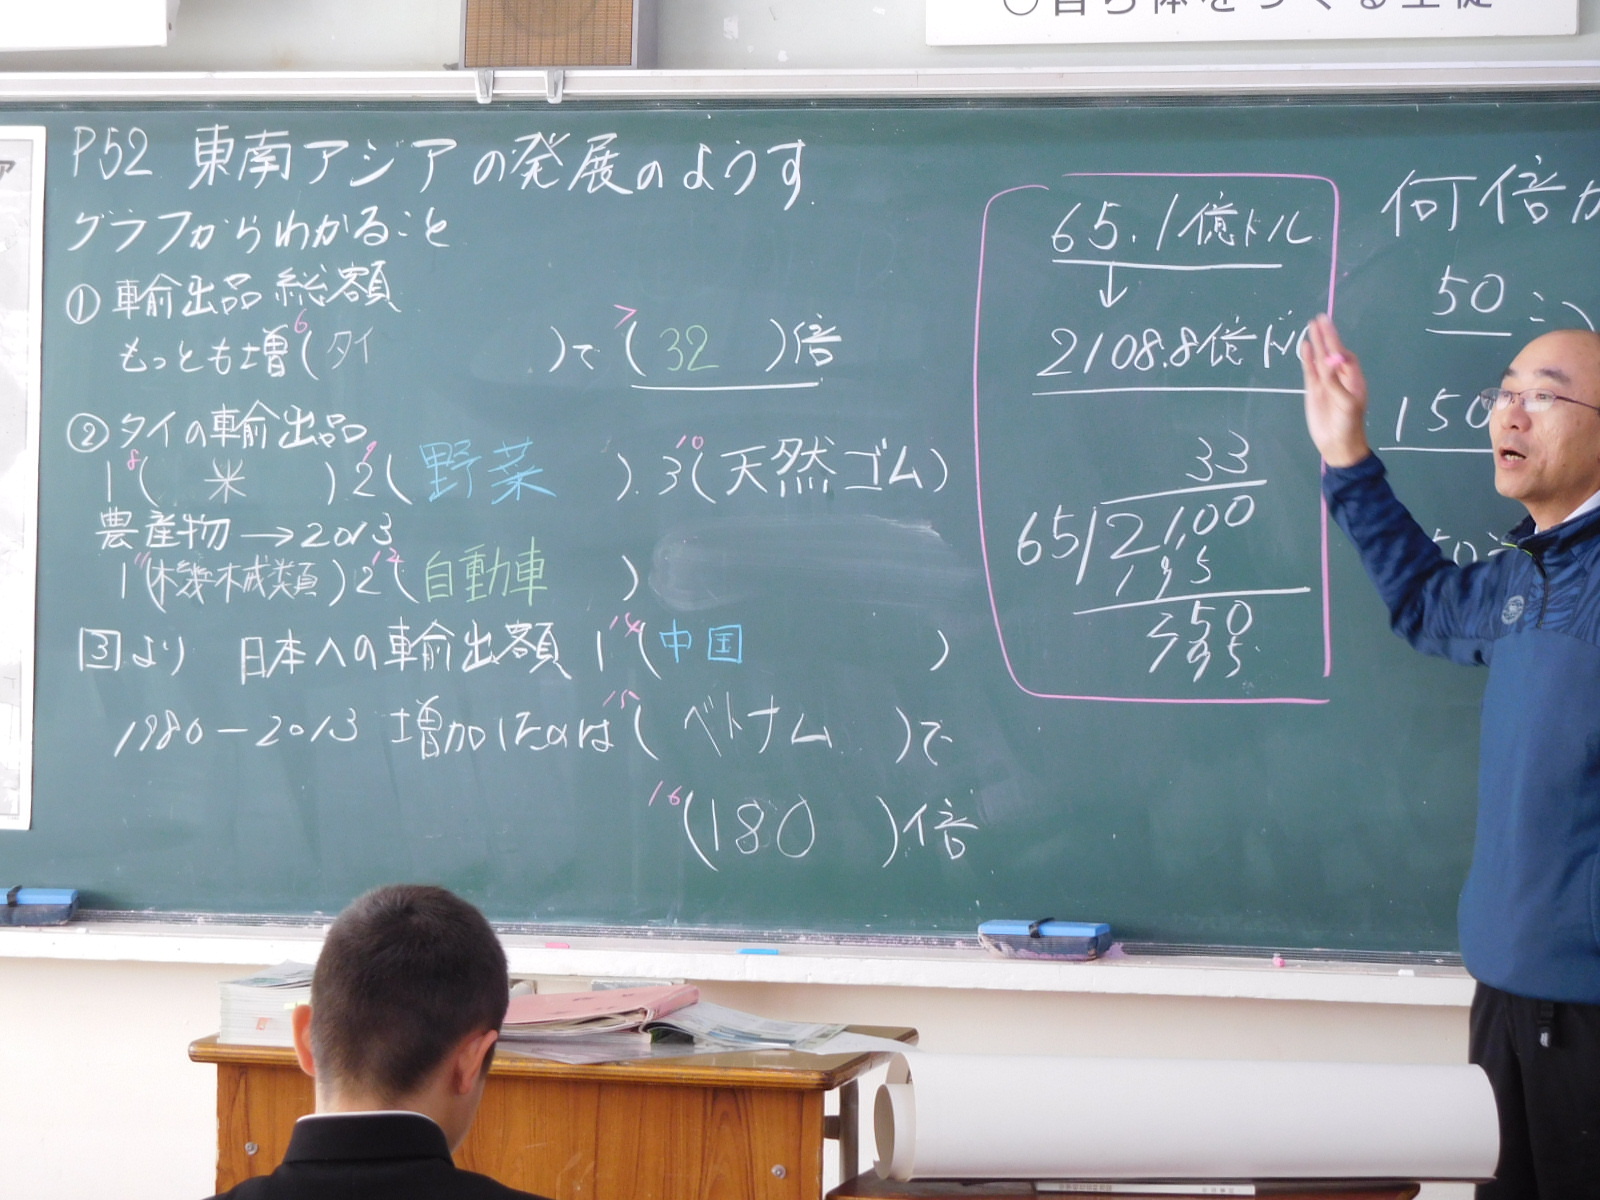 P52 東南アジアの発展のようす
グラフからわかること
① 輸出品 総額
もっとも増 6(タイ )で 7(32 )倍
② タイの輸出品
1 8( 米 ) 2 9( 野菜 ). 3 10(天然ゴム)
農産物→2013
1 11(機械類) 2 12(自動車 )
3 より 日本への輸出額 1 14(中国 )
1980-2013 増加したのは 15( ベトナム )で
16(180 )倍
65.1億ドル
↓
2108.8億ドル
33
65 2100
195
350
395
何倍か
50
150